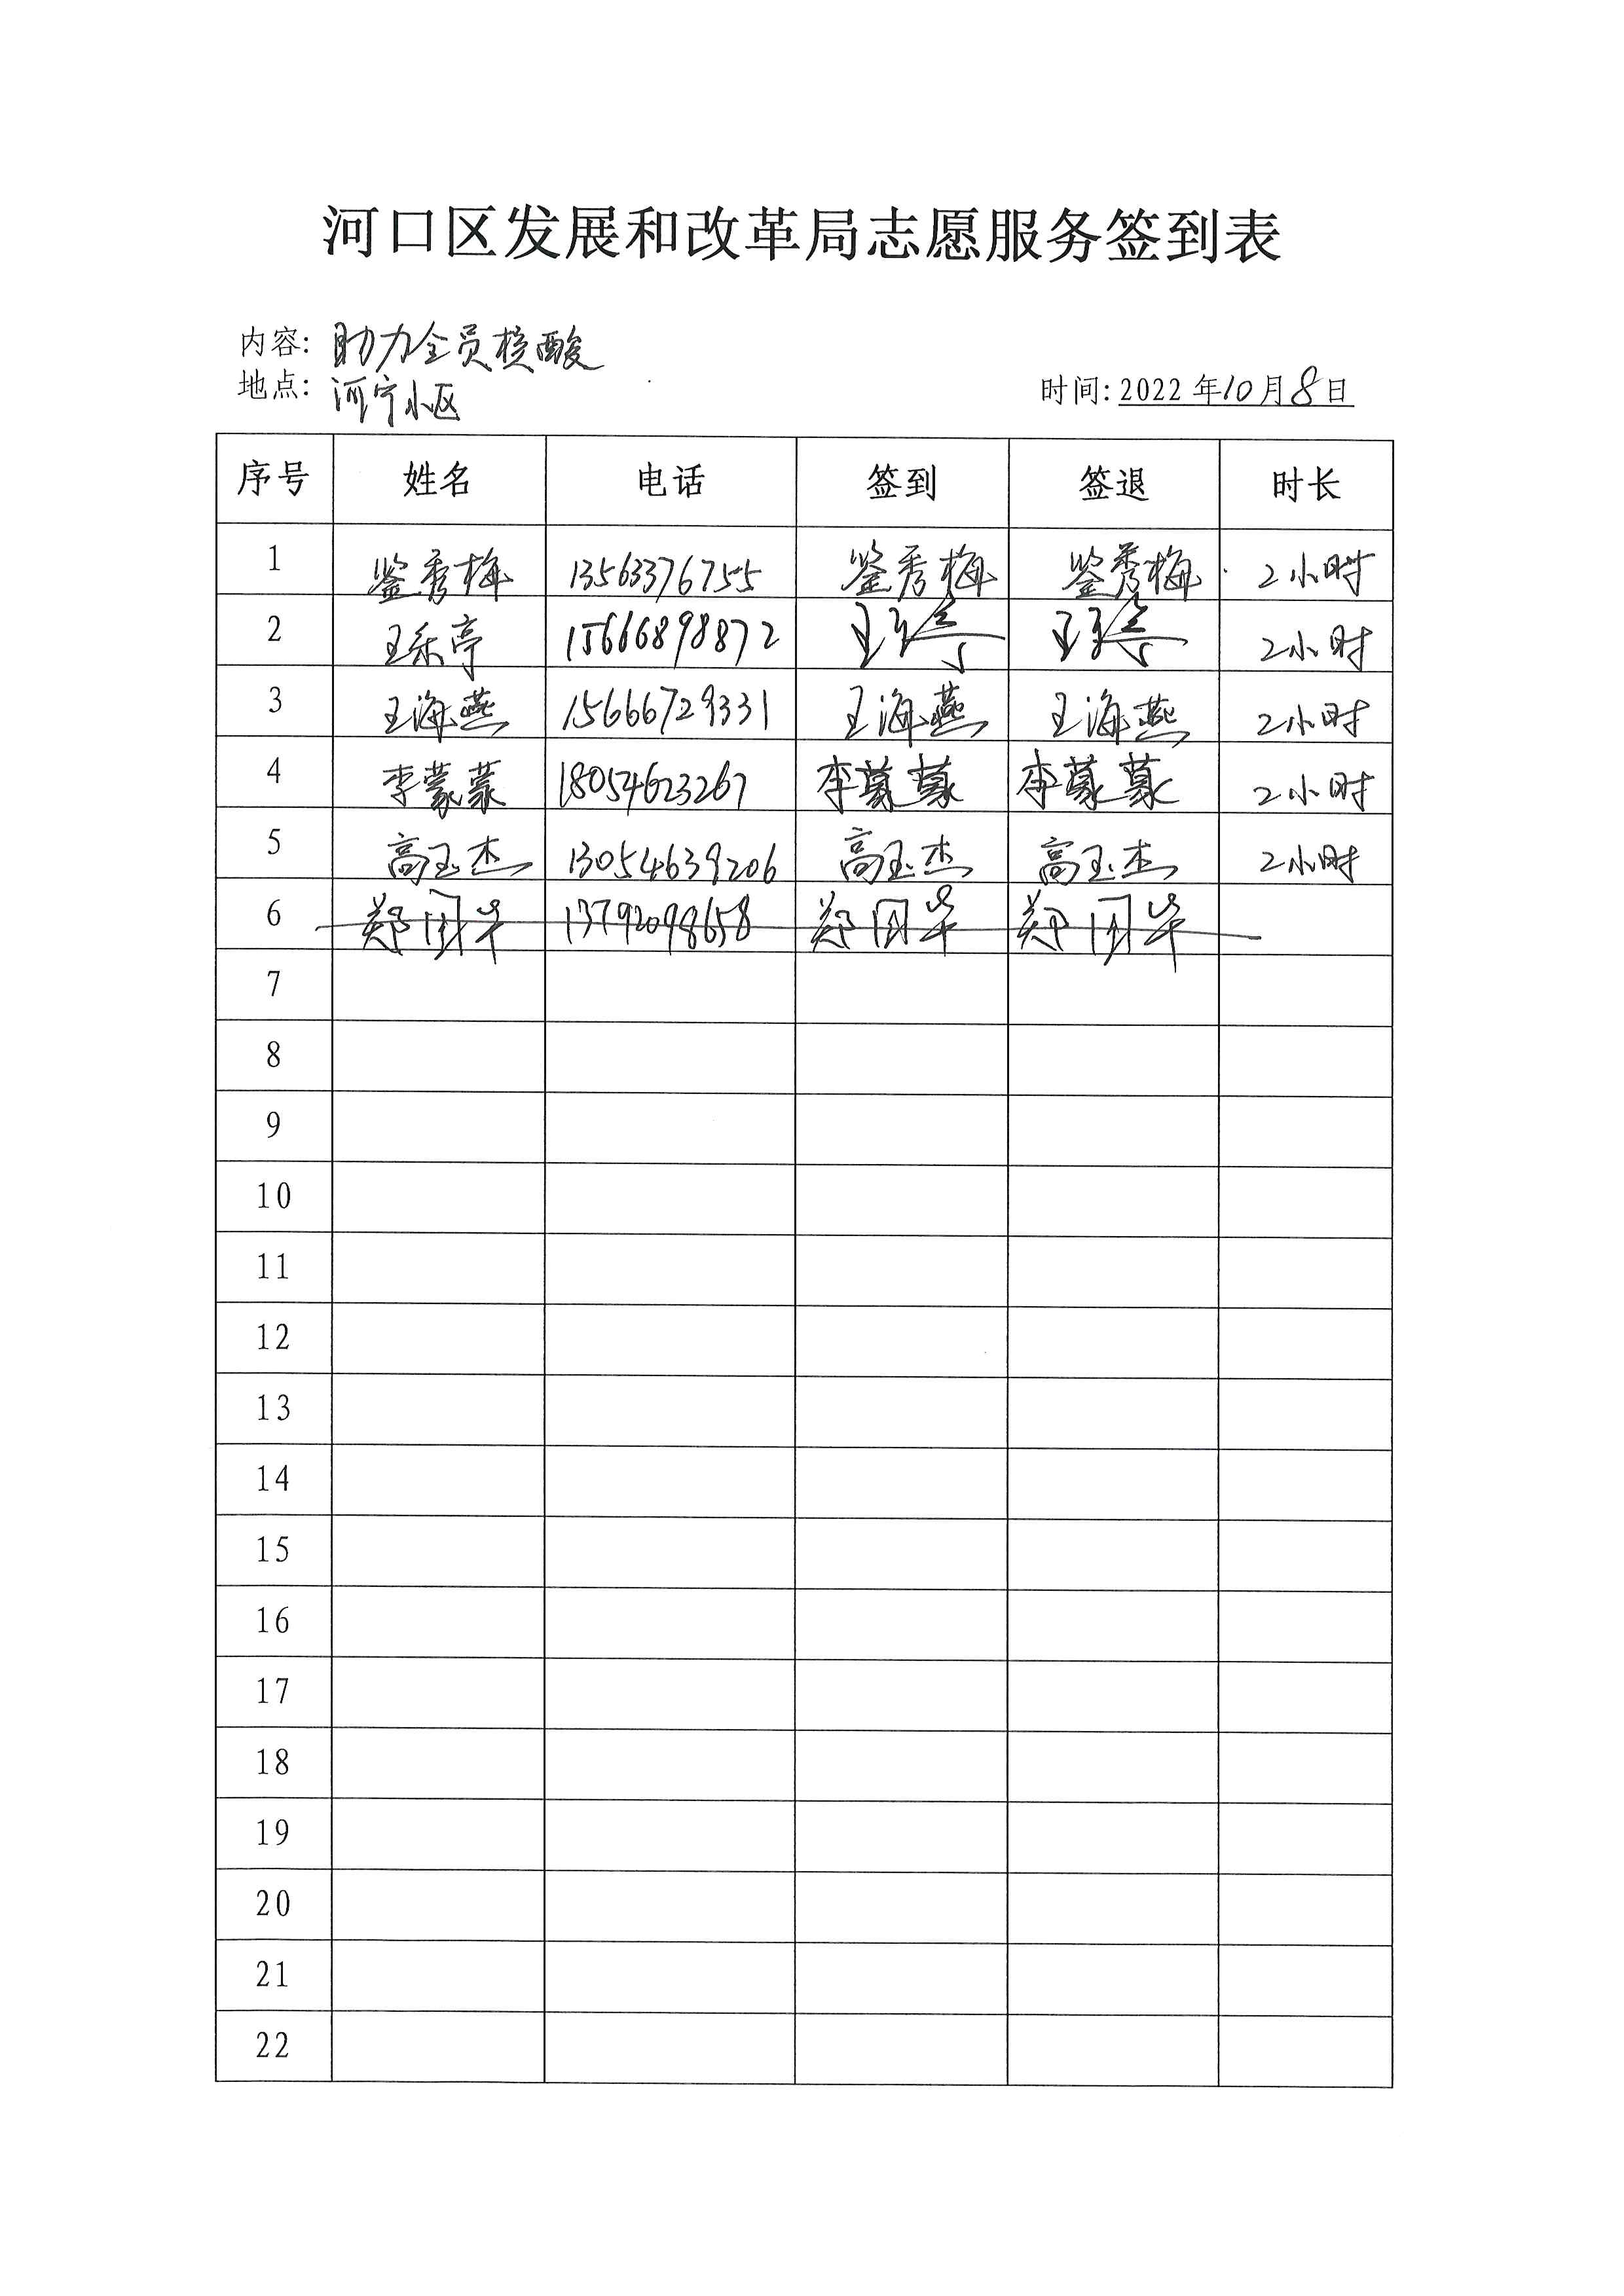 河口区发展和改革局志愿服务签到表
内容：助力全员核酸
地点：河宁小区
时间：2022年10月8日
序号 姓名 电话 签到 签退 时长
1 鉴秀梅 13563376755 鉴秀梅 鉴秀梅 2小时
2 王乐亭 15666898872 2小时
3 王海燕 15666729331 王海燕 王海燕 2小时
4 李蒙蒙 18054623267 李蒙蒙 李蒙蒙 2小时
5 高玉杰 13054639206 高玉杰 高玉杰 2小时
6 郑国华 13792098658 郑国华 郑国华
7
8
9
10
11
12
13
14
15
16
17
18
19
20
21
22